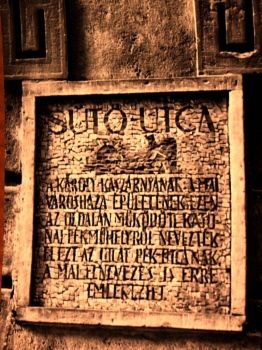 SÜTŐ-UTCA
A KÁROLY KASZÁRNYÁNAK A MAI
VÁROSHÁZA ÉPÜLETÉNEK EZEN
AZ OLDALÁN MŰKÖDÖTT KATO
NAI PÉKMŰHELYRŐL NEVEZTÉK
EL EZT AZ UTCÁT PÉK-UTCÁNAK
A MAI ELNEVEZÉS IS ERRE
EMLÉKEZTET